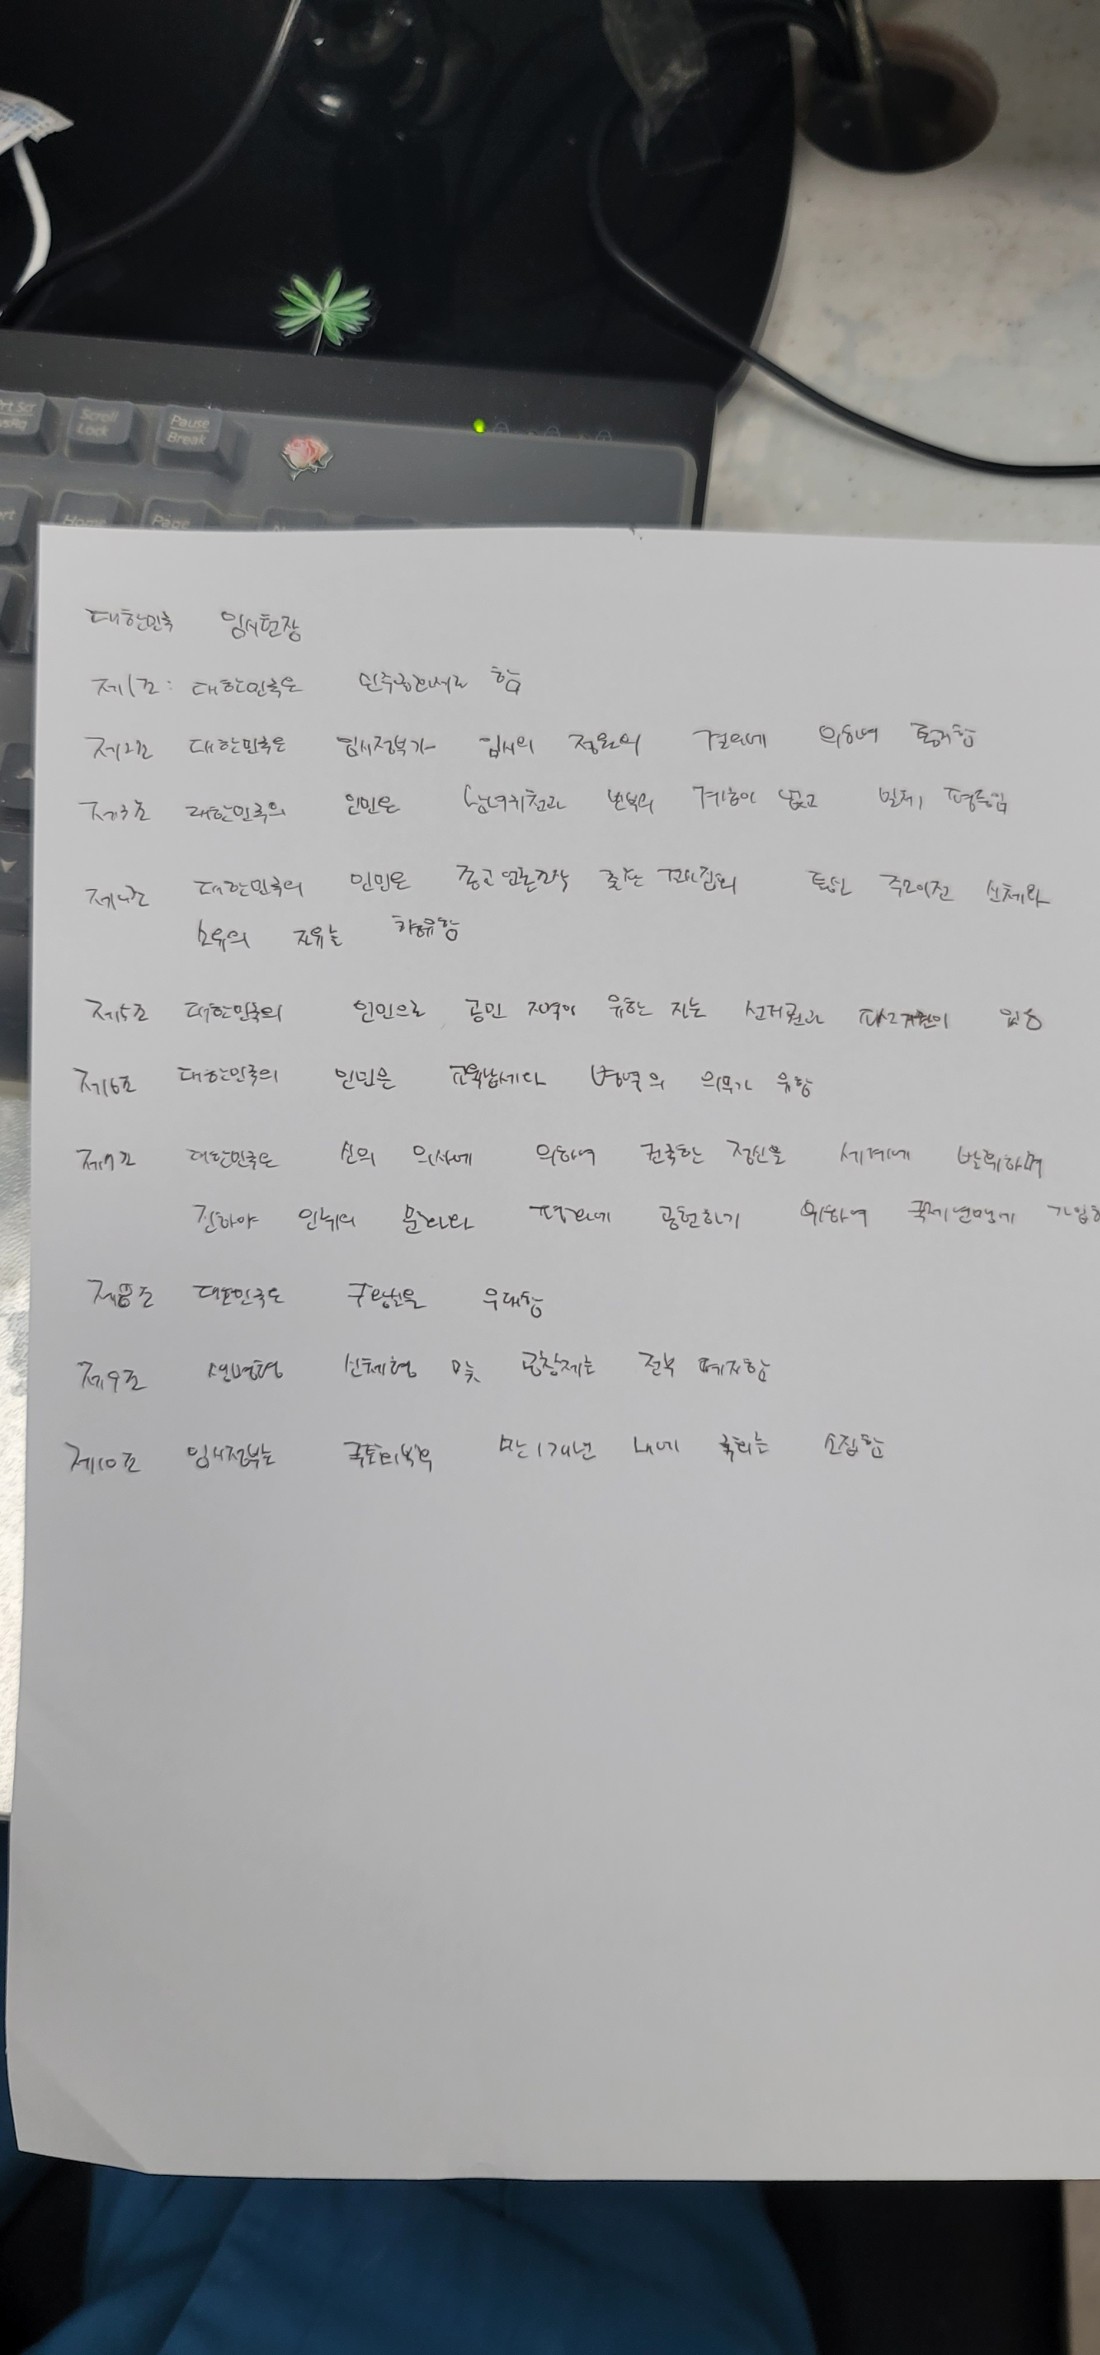 Prt Scr
SysRq
Scroll
Lock
Pause
Break
Home
Page
대한민국 임시헌장
제1조: 대한민국은 민주공화제로 함
제2조 대한민국은 임시정부가 임시의 정원의 결의에 의하여 통치함
제3조 대한민국의 인민은 남녀귀천과 빈부의 계층이 없고 일체 평등임
제4조 대한민국의 인민은 종교 언론 저작 출판 결사 집회 통신 주소이전 신체와
소유의 자유는 향유함
제5조 대한민국의 인민으로 공민 자격이 유하는 자는 선거권과 피선거권이 있음
제6조 대한민국의 인민은 교육납세와 병역의 의무가 유함
제7조 대한민국은 신의 의사에 의하여 건국한 정신을 세계에 발휘하며
진하야 인류의 문화와 평화에 공헌하기 위하여 국제연맹에 가입
제8조 대한민국은 구황실을 우대함
제9조 생명형 신체형 및 공창제는 전부 폐지함
제10조 임시정부는 국토회복후 만1개년 내에 국회는 소집함